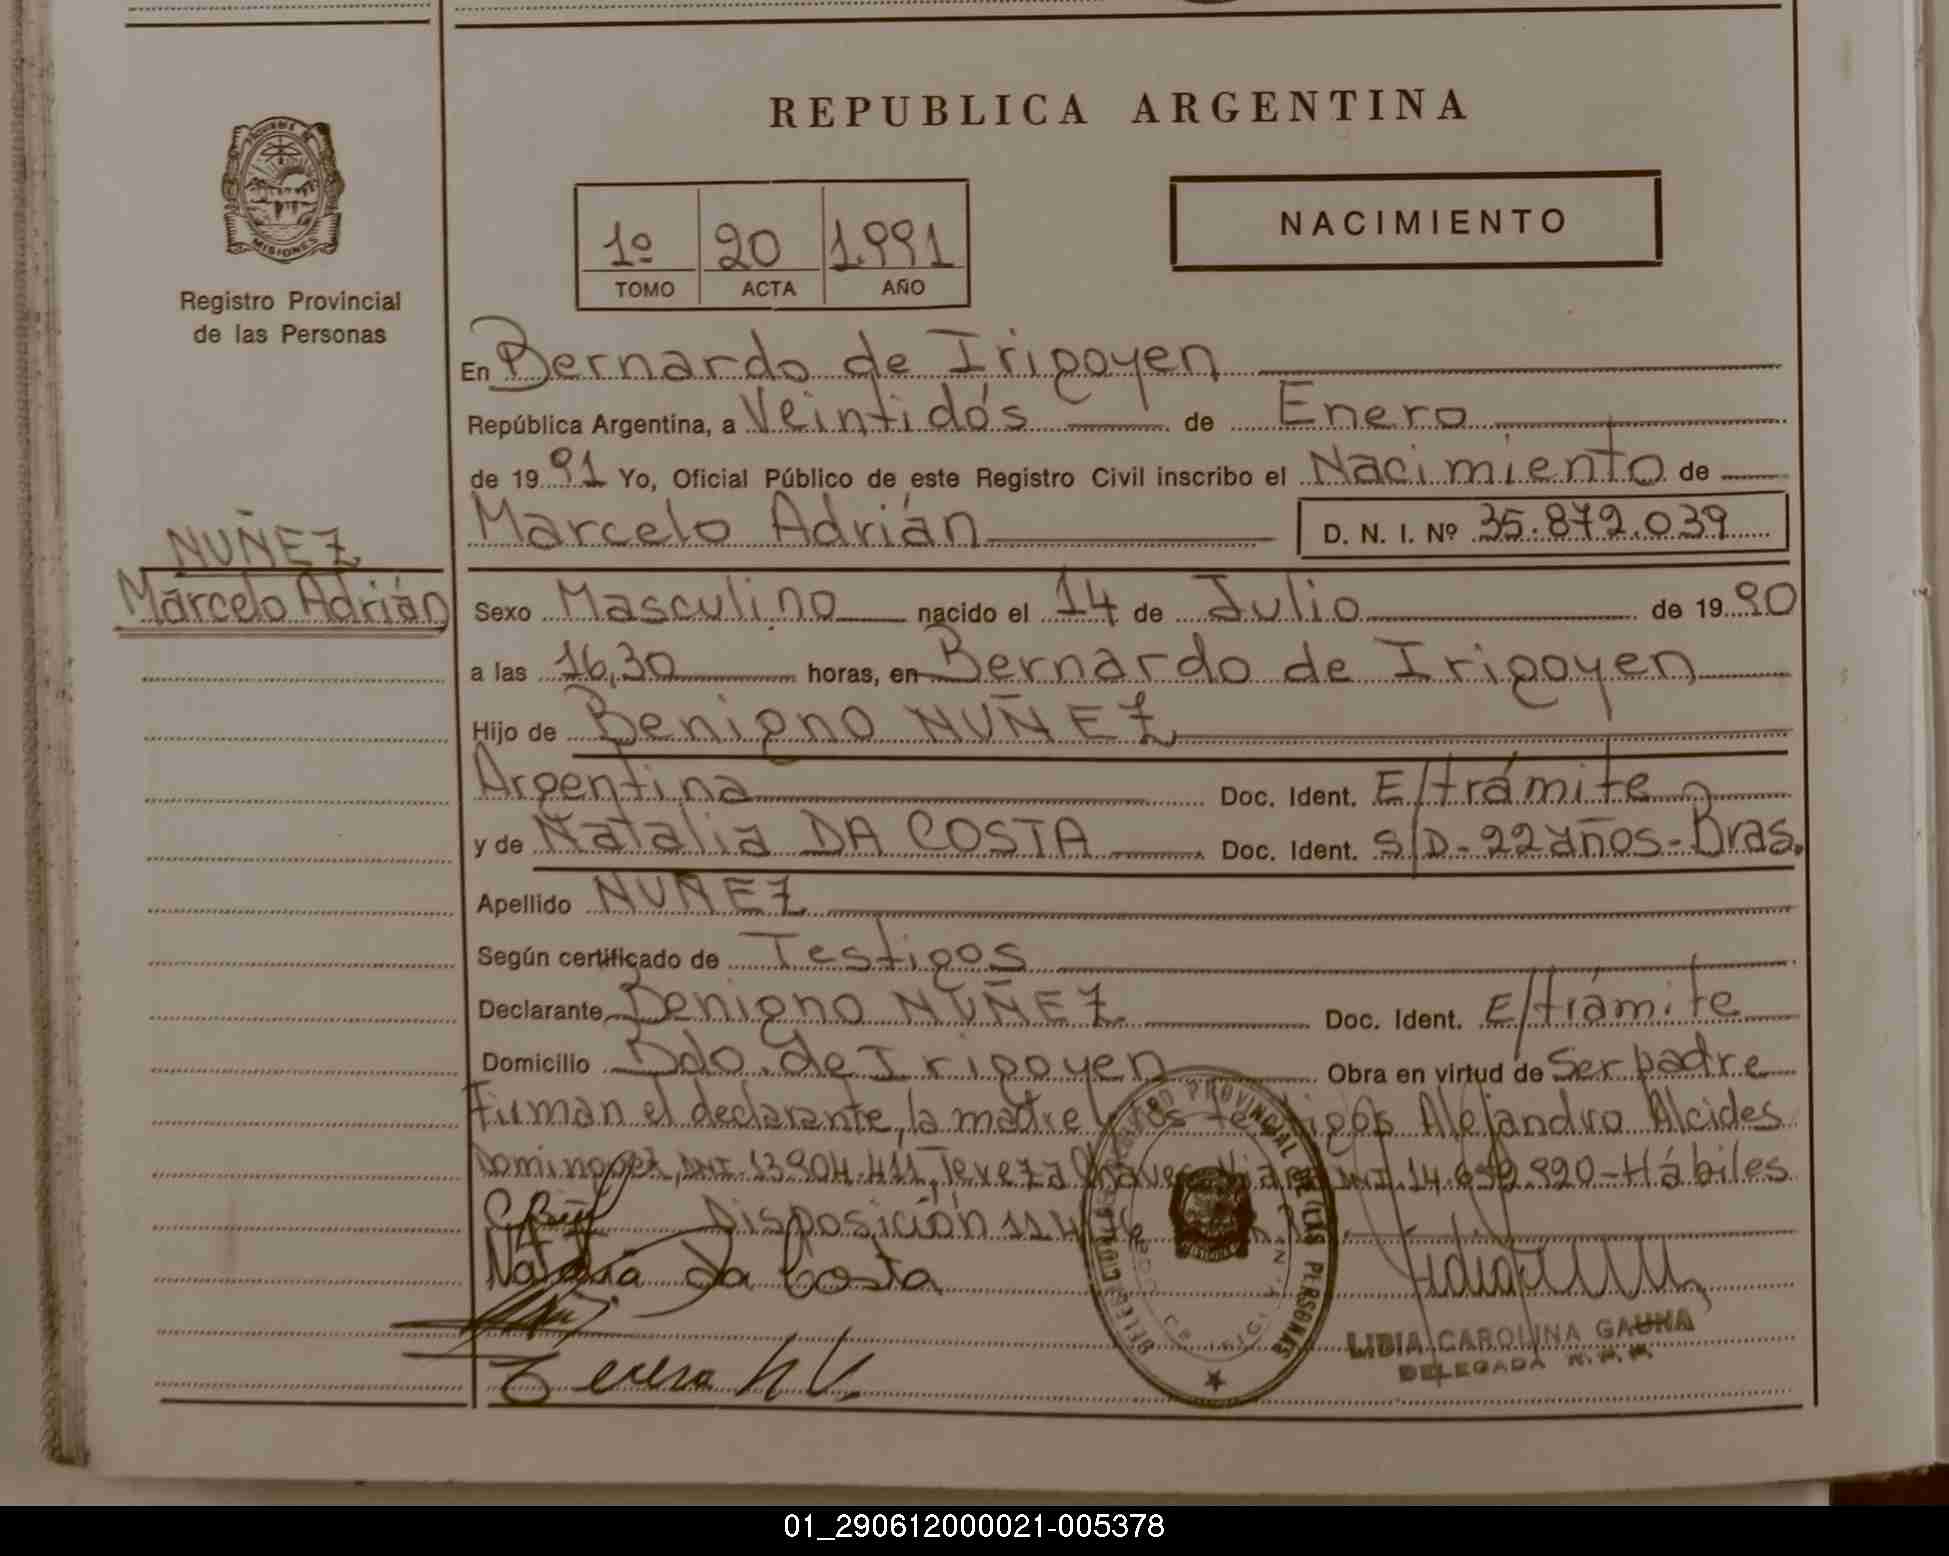 REPUBLICA ARGENTINA
MISIONES
Registro Provincial
de las Personas
1º 20 1.991
TOMO ACTA AÑO
NACIMIENTO
En Bernardo de Irigoyen
República Argentina, a Veintidós de Enero
de 1991 Yo, Oficial Público de este Registro Civil inscribo el Nacimiento de
Marcelo Adrián D. N. I. Nº 35.872.039
NUÑEZ
Marcelo Adrián
Sexo Masculino nacido el 14 de Julio de 1990
a las 16,30 horas, en Bernardo de Irigoyen
Hijo de Benigno NUÑEZ
Argentina Doc. Ident. E/trámite
y de Natalia DA COSTA Doc. Ident. S/D-22 años-Bras.
Apellido NUÑEZ
Según certificado de Testigos
Declarante Benigno NUÑEZ Doc. Ident. E/trámite
Domicilio Bdo. de Irigoyen Obra en virtud de Ser padre
Firman el declarante, la madre y los testigos Alejandro Alcides
Dominguez, DNI. 13.904.411, Tereza Chaves DNI. 14. 920-Hábiles
Disposición
Natalia da Costa
Teresa
REGISTRO PROVINCIAL DE LAS PERSONAS
LIDIA CAROLINA GAUNA
DELEGADA
01_290612000021-005378